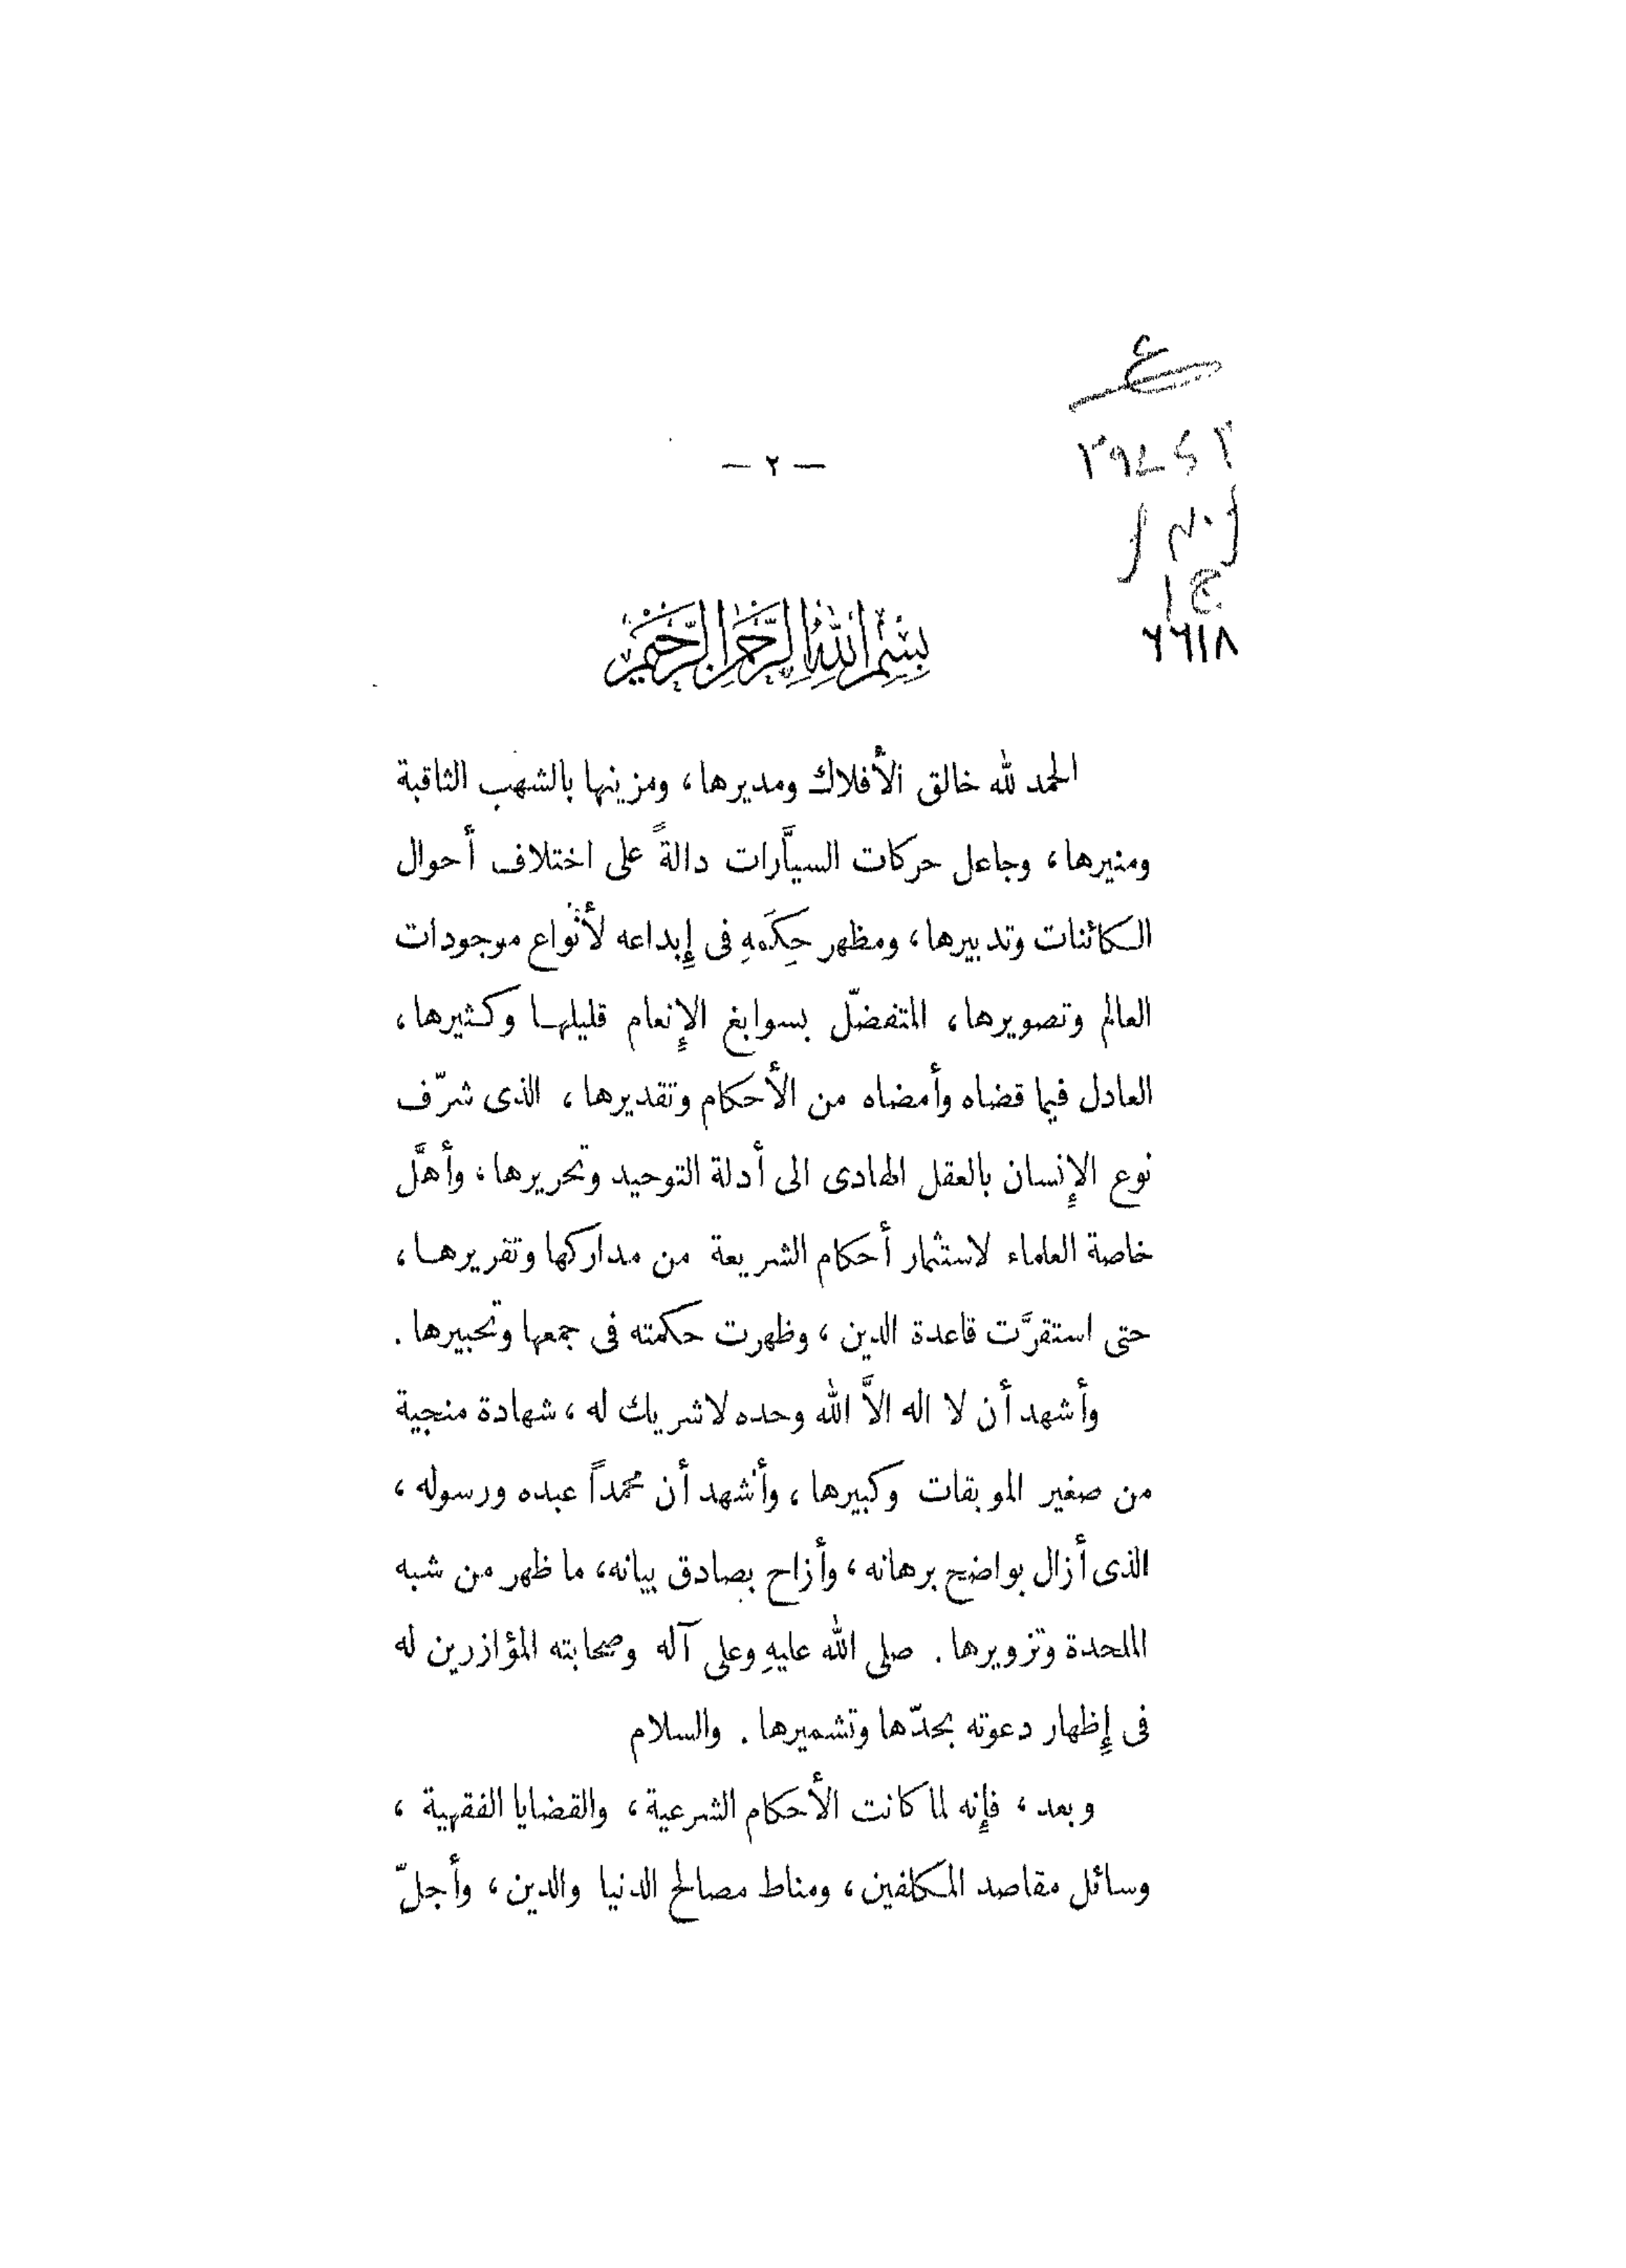 — ٢ —
ج ١
٦٦١٨
بسم الله الرحمن الرحيم
الحمد لله خالق الأفلاك ومديرها، ومزينها بالشهب الثاقبة
ومنيرها، وجاعل حركات السيَّارات دالةً على اختلاف أحوال
الكائنات وتدبيرها، ومظهر حِكَمهِ فى إِبداعه لأنواع موجودات
العالم وتصويرها، المتفضّل بسوابغ الإِنعام قليلها وكثيرها،
العادل فيما قضاه وأمضاه من الأحكام وتقديرها، الذى شرّف
نوع الإِنسان بالعقل الهادى الى أدلة التوحيد وتحريرها، وأهَّل
خاصة العلماء لاستثمار أحكام الشريعة من مداركها وتقريرها،
حتى استقرَّت قاعدة الدين، وظهرت حكمته فى جمعها وتحبيرها.
وأشهد أن لا اله الاَّ الله وحده لاشريك له، شهادة منجية
من صغير الموبقات وكبيرها، وأشهد أن محمداً عبده ورسوله،
الذى أزال بواضح برهانه، وأزاح بصادق بيانه، ما ظهر من شبه
الملحدة وتزويرها. صلى الله عليهِ وعلى آله وصحابته المؤازرين له
فى إِظهار دعوته بحدّها وتشميرها. والسلام
وبعد، فإِنه لما كانت الأحكام الشرعية، والقضايا الفقهية،
وسائل مقاصد المكلفين، ومناط مصالح الدنيا والدين، وأجلّ